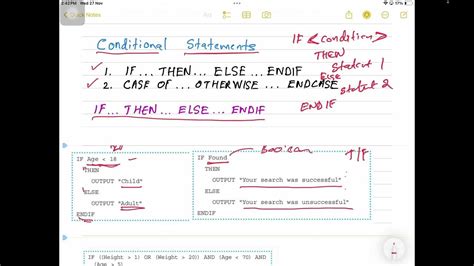 2:43 PM Wed 27 Nov
17%
Quick Notes
Conditional Statements
1. IF... THEN... ELSE... ENDIF
2. CASE OF... OTHERWISE... ENDCASE
IF <condition>
THEN
Statemt 1
Else
Statemt 2
ENDIF
IF... THEN... ELSE... ENDIF
IF Age < 18
THEN
OUTPUT "Child"
ELSE
OUTPUT "Adult"
ENDIF
Boolean
T/F
IF Found
THEN
OUTPUT "Your search was successful"
ELSE
OUTPUT "Your search was unsuccessful"
ENDIF
IF ((Height > 1) OR (Weight > 20)) AND (Age < 70) AND
(Age > 5)